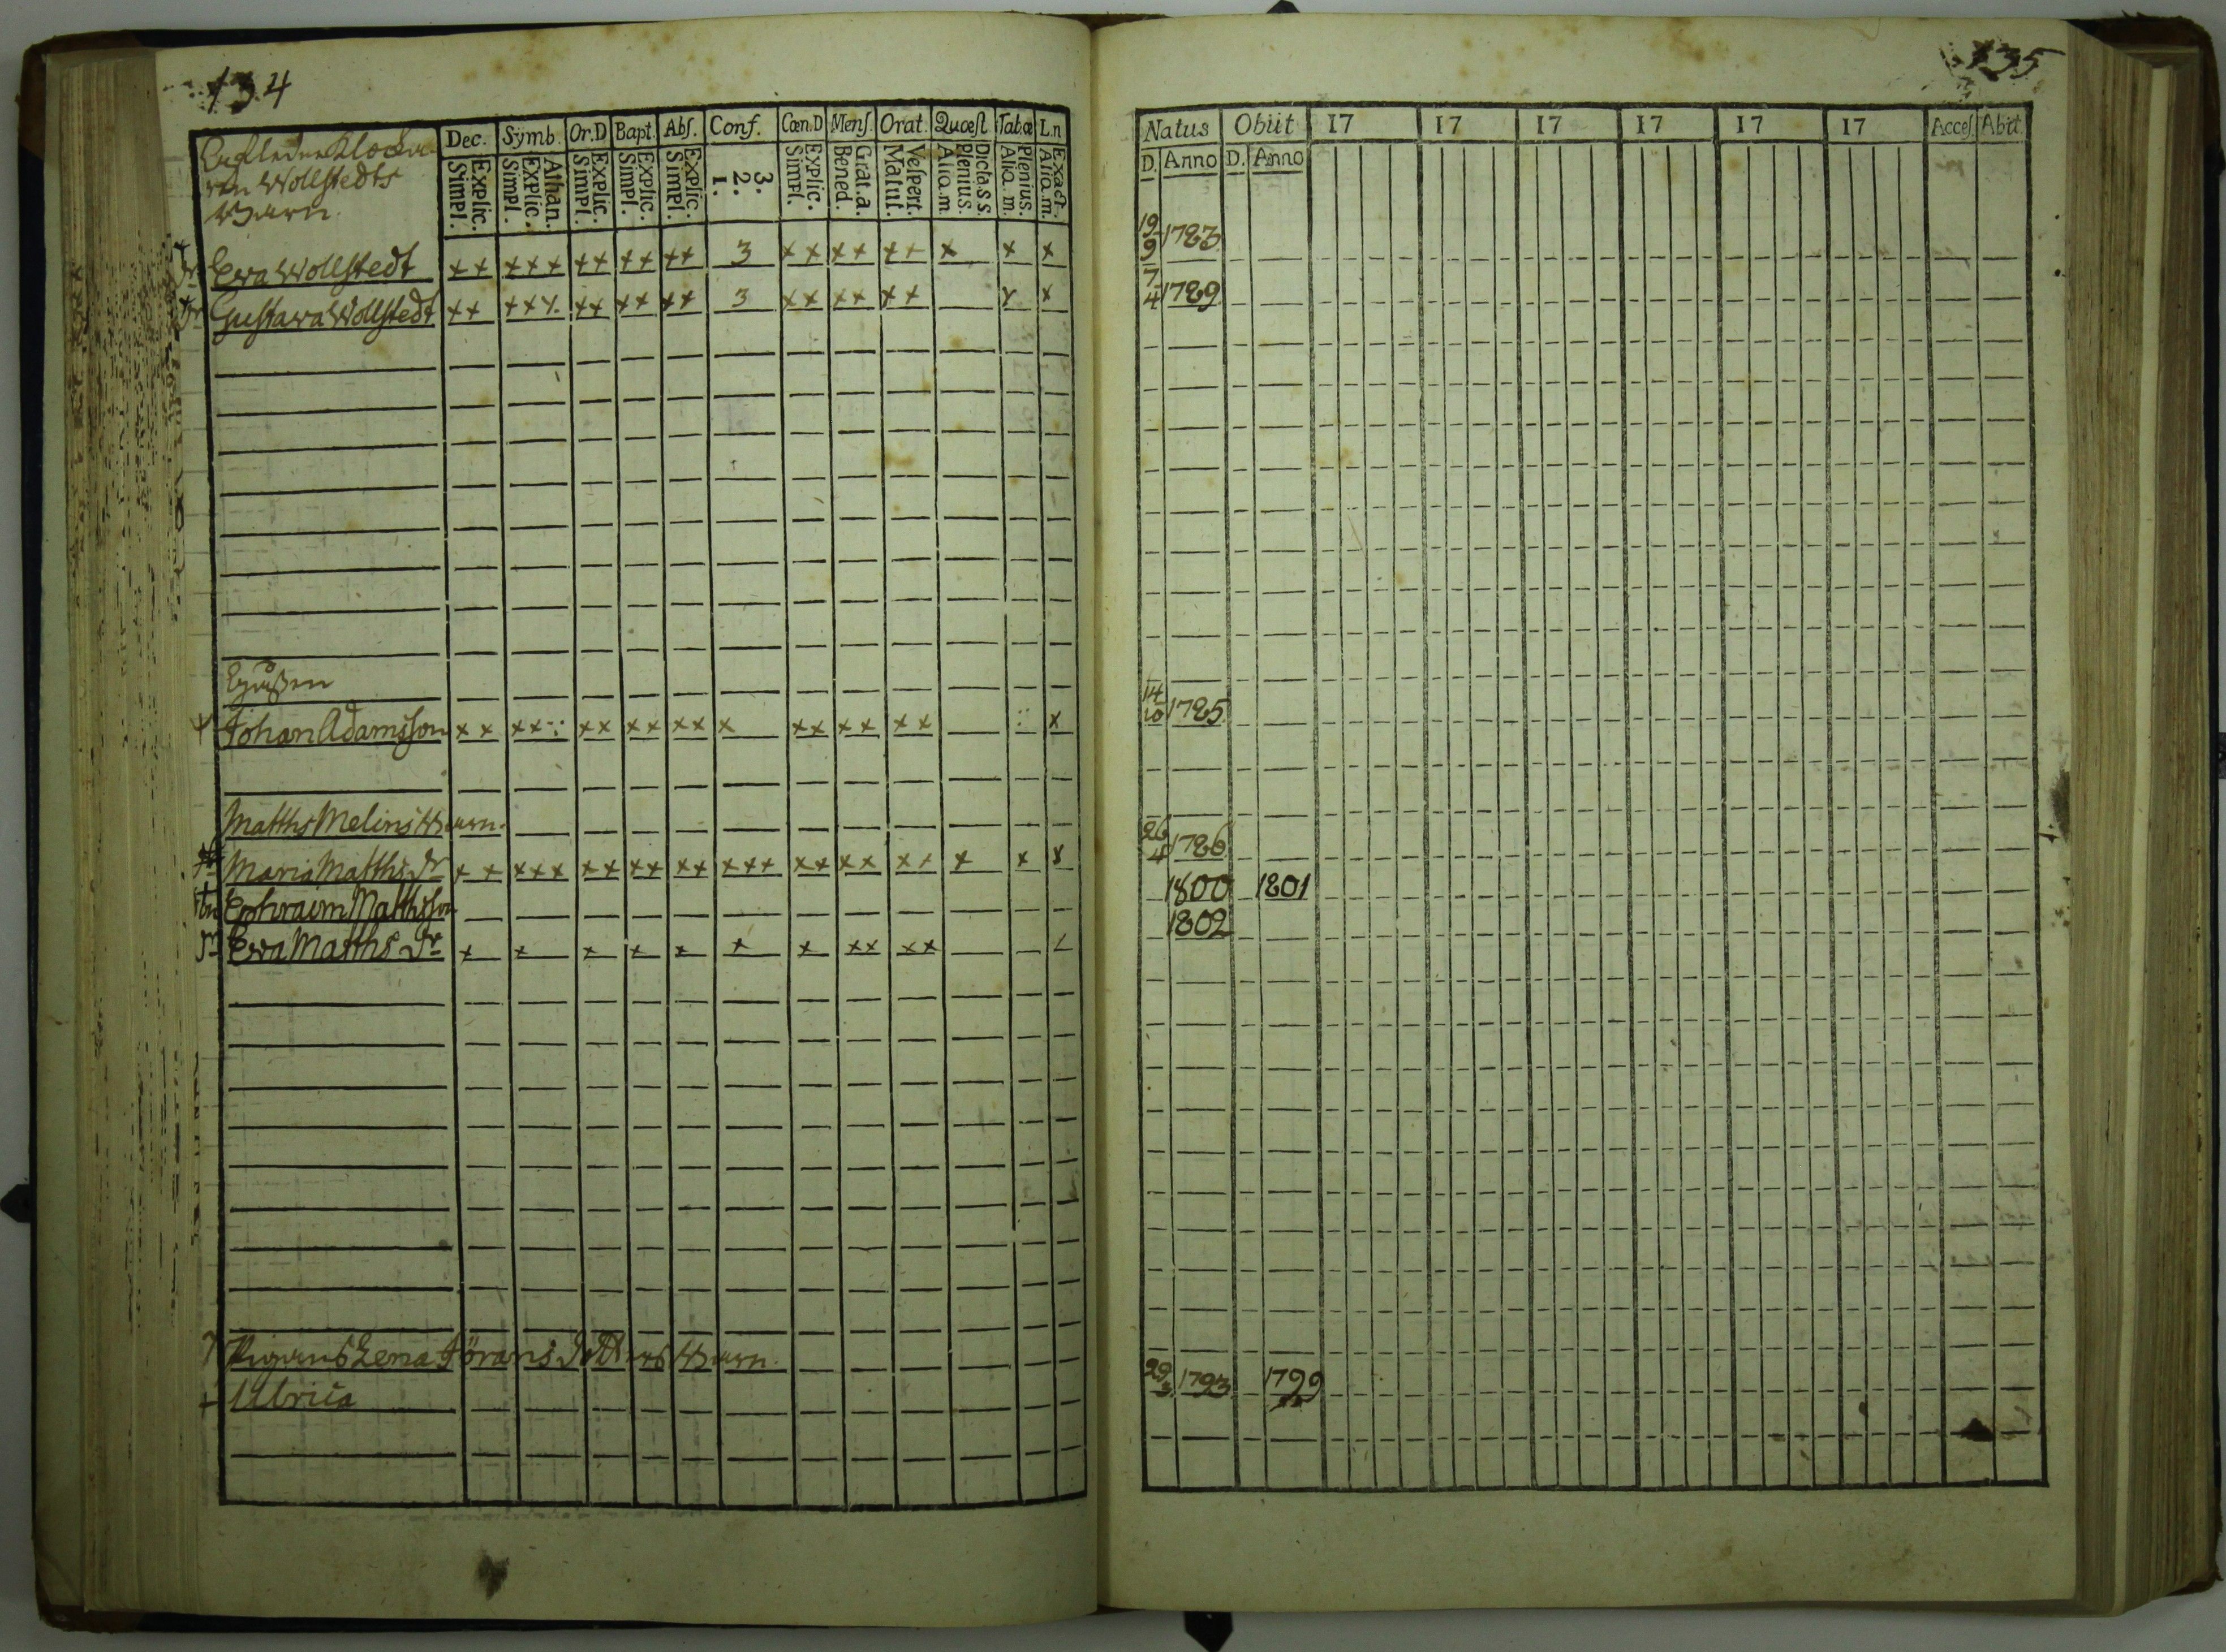 134
Dec. Symb. Or.D Bapt. Abſ. Conf. Cœn.D Menſ. Orat. Quœſt Tab.œ L.n
Klocka
Wollstedts
Barn.
Simpl. Explic. Simpl. Explic. Athan. Simpl. Explic. Simpl. Explic. Simpl. Explic. 1. 2. 3. Simpl. Explic. Bened. Grat.a. Matut. Veſpert. Alia.m. Plenius. Dicta.S S. Alia.m. Plenius. Alia.m. Exact.
Dr Ewa Wollstedt ×× ××× ×× ×× ×× 3 ×× ×× ×× × × ×
Dr Gustava Wollstedt ×× ××× ×× ×× ×× 3 ×× ×× ×× × ×
Johan Adamsson ×× ×× ×× ×× ×× × ×× ×× ×× ×
Matths Melins Barn.
Maria Matths Dr ×× ××× ×× ×× ×× ××× ×× ×× ×× × × ×
Ephraim Mattsson
Dr Ewa Matths Dr × × × × × × × ×× ××
Pigans Lena Jörans Dotters Barn.
Ulrica
135
Natus Obiit 17 17 17 17 17 17 Acceſ. Abit.
D. Anno D. Anno
19/9 1783
7/4 1789
14/10 1785
26/4 1786
1800 1801
1802
29/3 1793 1799